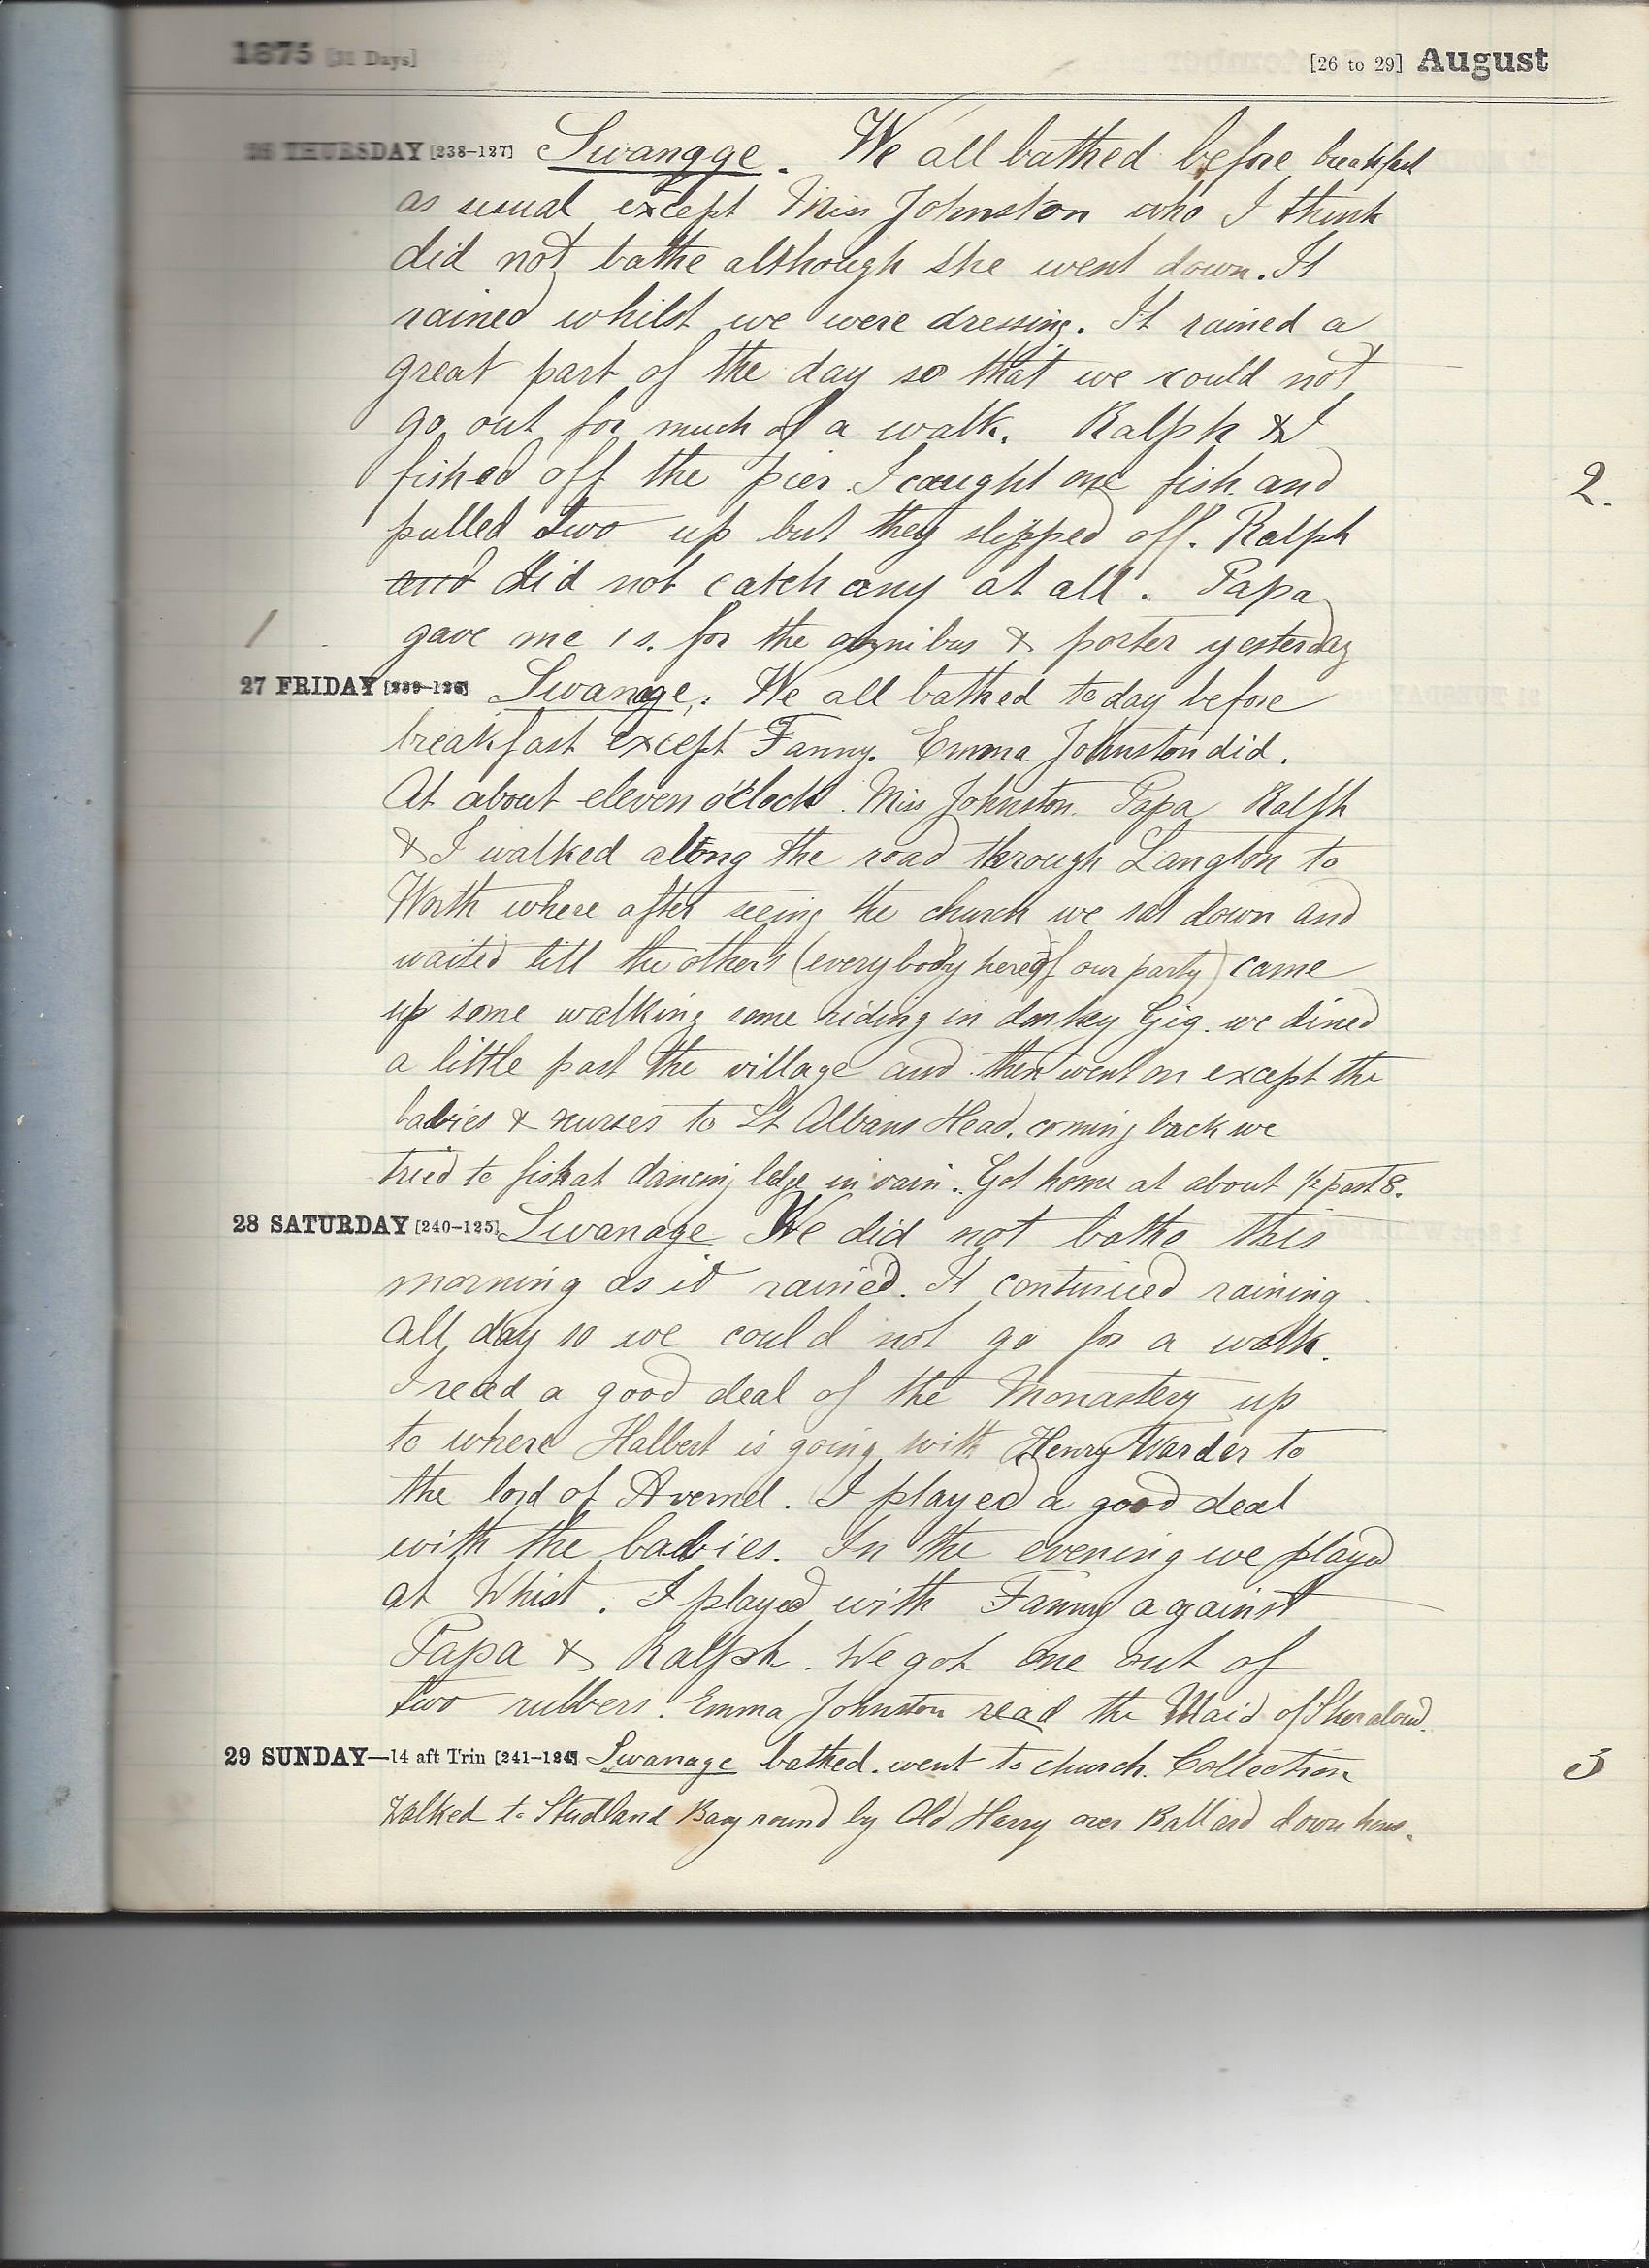 1875 [31 Days] [26 to 29] August
26 THURSDAY [238-127] Swangge. We all bathed before breakfast
as usual except Miss Johnston who I think
did not bathe although she went down. It
rained whilst we were dressing. It rained a
great part of the day so that we could not
go out for much of a walk. Ralph & I
fished off the pier. I caught one fish and 2.
pulled two up but they slipped off. Ralph
and did not catch any at all. Papa
/ gave me 1s. for the omnibus & porter yesterday
27 FRIDAY [239-126] Swanage. We all bathed today before
breakfast except Fanny. Emma Johnston did.
At about eleven o'clock Miss Johnston Papa Ralph
& I walked along the road through Langton to
Worth where after seeing the church we sat down and
waited till the others (everybody here of our party) came
up some walking some riding in donkey Gig. we dined
a little past the village and then went on except the
babies & nurses to St Albans Head. coming back we
tried to fish at dancing ledge in vain. Got home at about ½ past 8.
28 SATURDAY [240-125] Swanage We did not bathe this
morning as it rained. It continued raining
all day so we could not go for a walk.
I read a good deal of the Monastery up
to where Halbert is going with Henry Warder to
the lord of Avenel. I played a good deal
with the babies. In the evening we played
at Whist. I played with Fanny against
Papa & Ralph. We got one out of
two rubbers. Emma Johnston read the Maid of Sker aloud.
29 SUNDAY—14 aft Trin [241-124] Swanage bathed. went to church. Collection 3
Walked to Studland Bay round by Old Harry over Ballard down home.